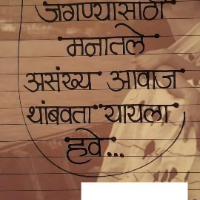 जगण्यासाठी
मनातले
असंख्य आवाज
थांबवता यायला
हवे...